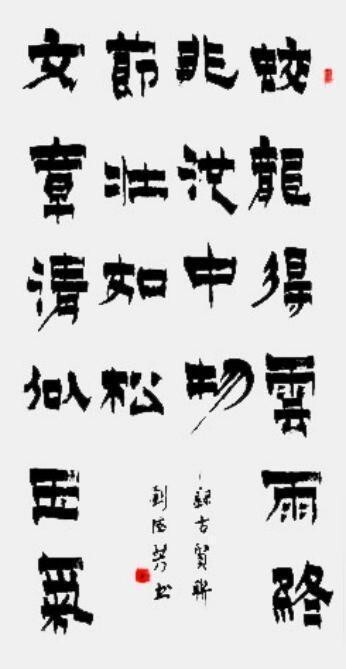 蛟龍得雲雨終
非池中物
文章清似玉氣
節壯如松
錄古賢聯